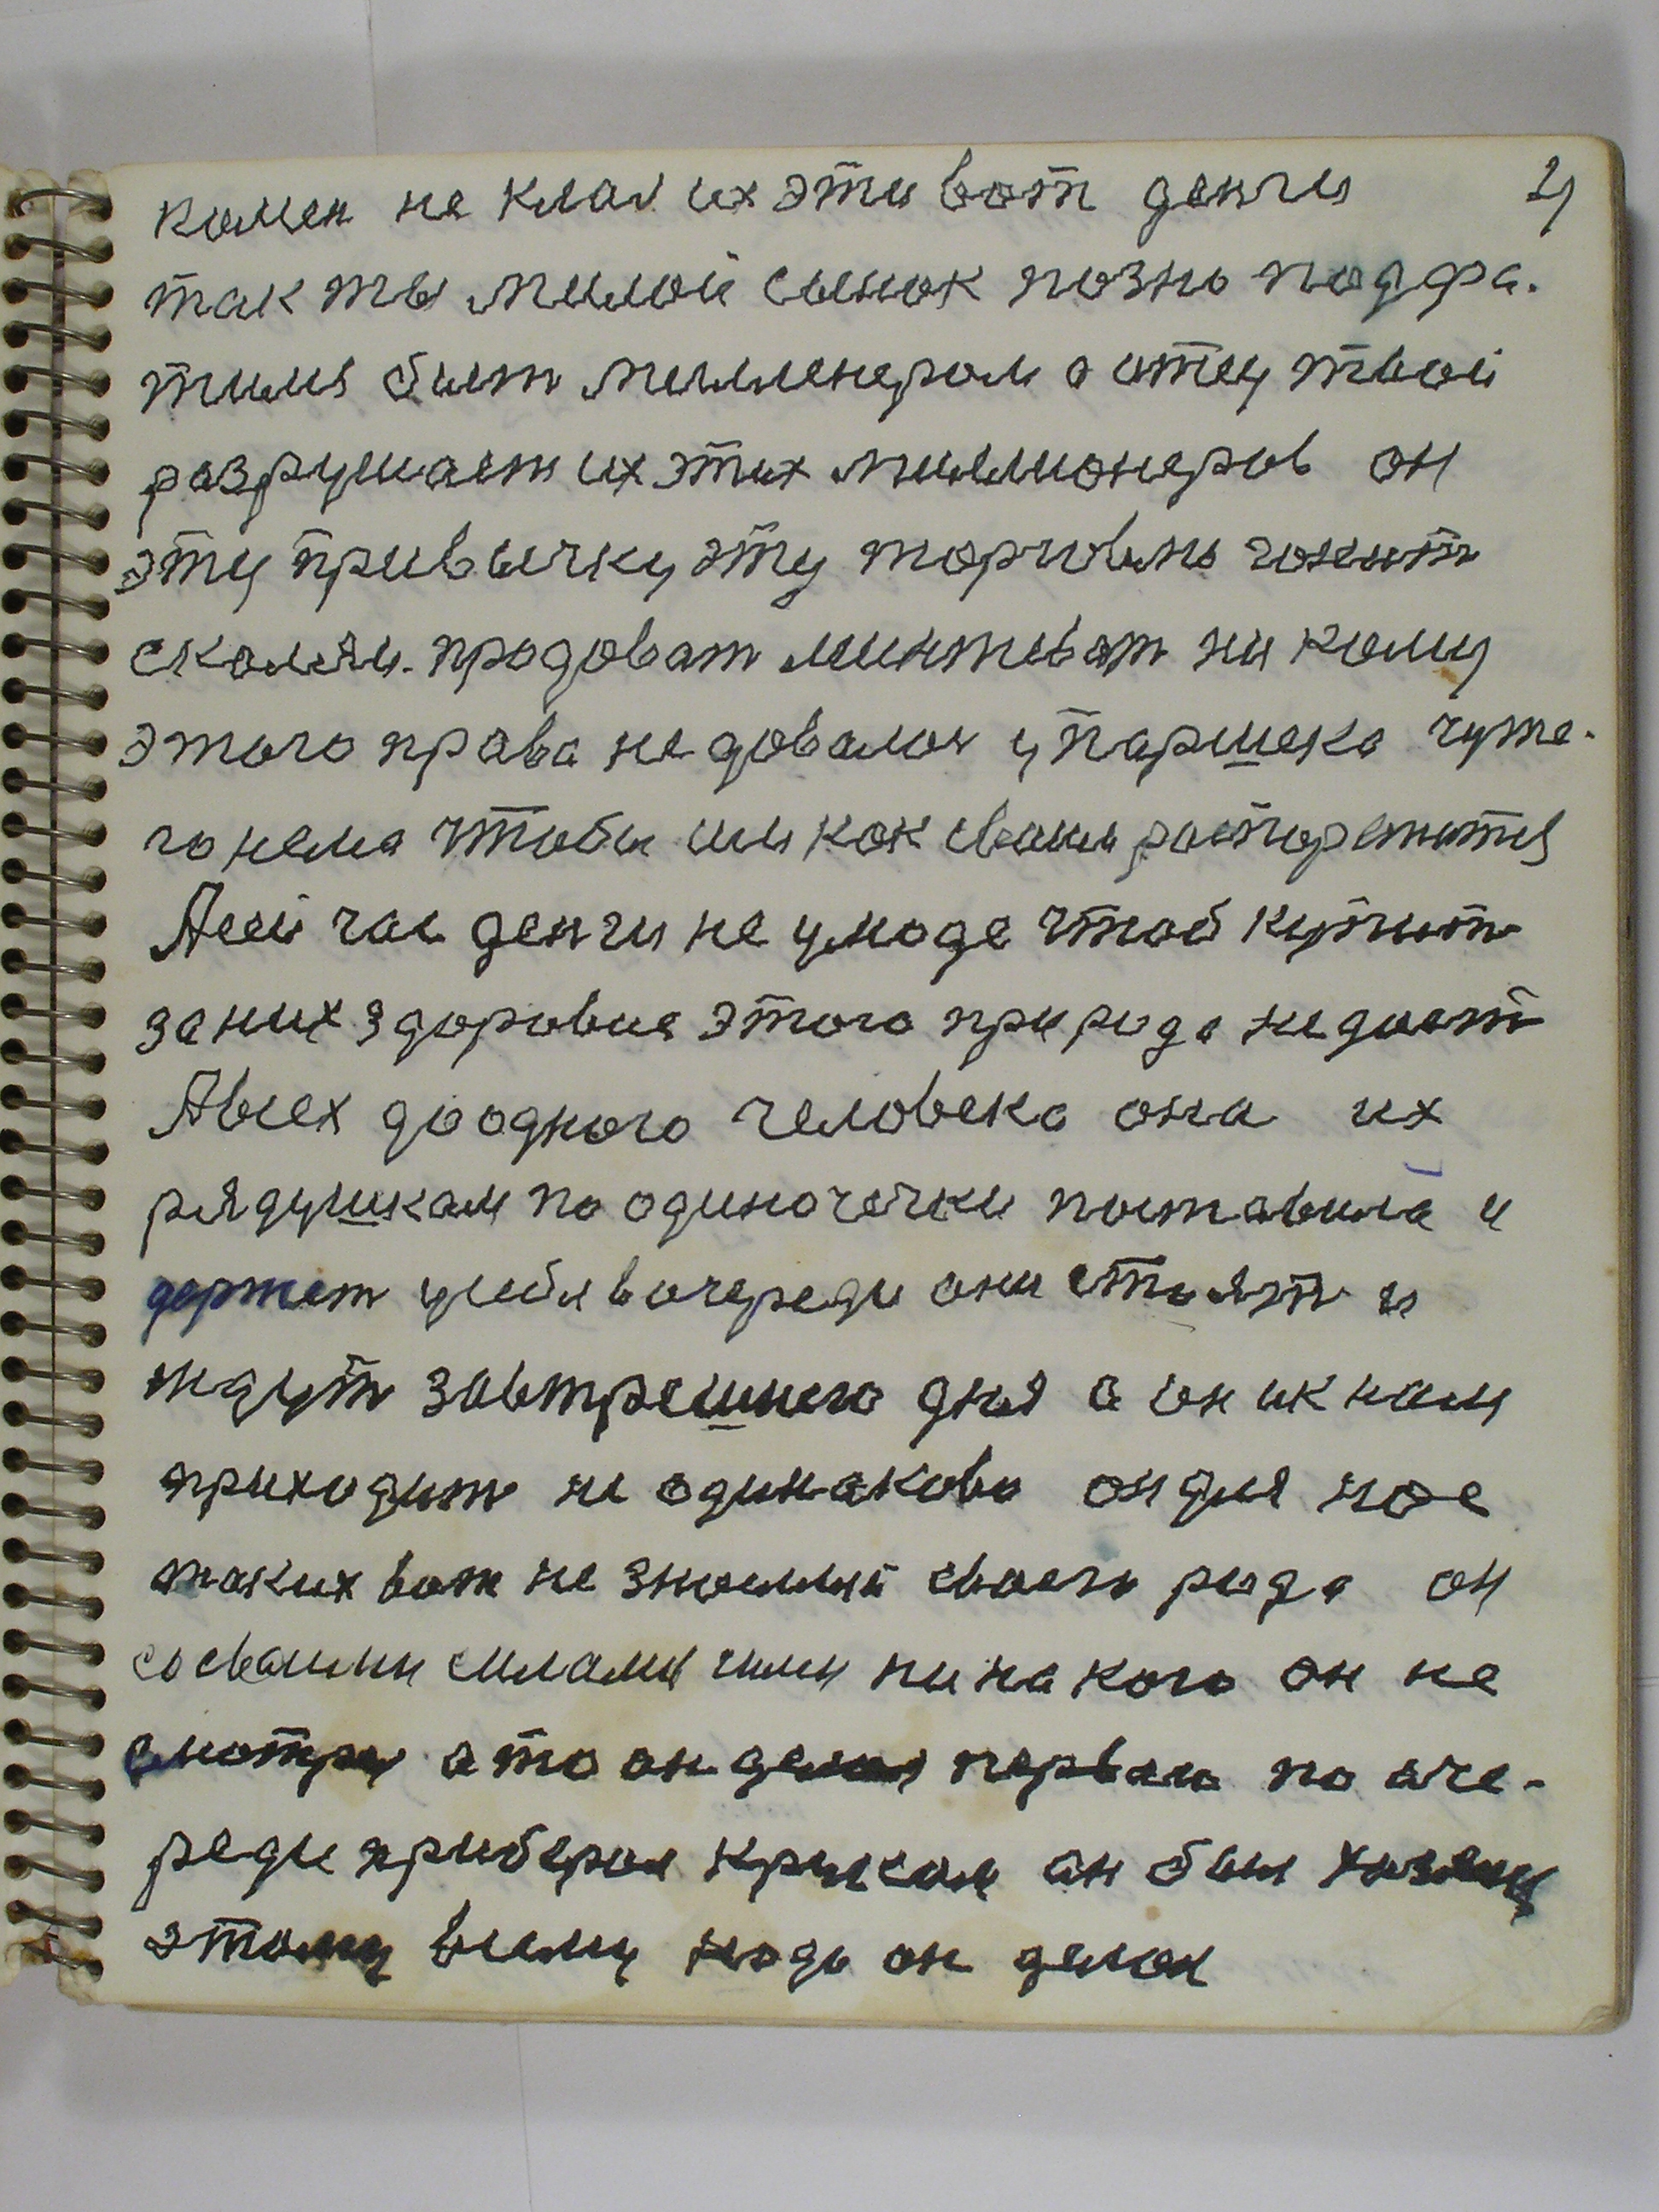 комен не клал их эти вот денги 21
так ты милой сынок позно подфа-
тился быт миленером а отец твой
разрушает их этих миллионеров он
эту привычку эту торговлю гонит
сколячи. продоват минтеват ни кому
этого права не довалоя у Паршека чуже-
го нема чтобы им как своим распоряжится
Асей час денги не умоде чтоб купит
за них здоровия этого природа не дает
Авсех до одного человека она их
рядушкам по одиночечки поставила и
держет усебя вочереди они стоят и
ждут завтрешнего дня а он ик нам
приходит не одинаково он для нас
таких вот не знаший своего рода он
со своими силами ними ни на кого он не
смотрел а то он делал первым по аче-
реди приберал крысам он был хозяин
этому всему нада он делал